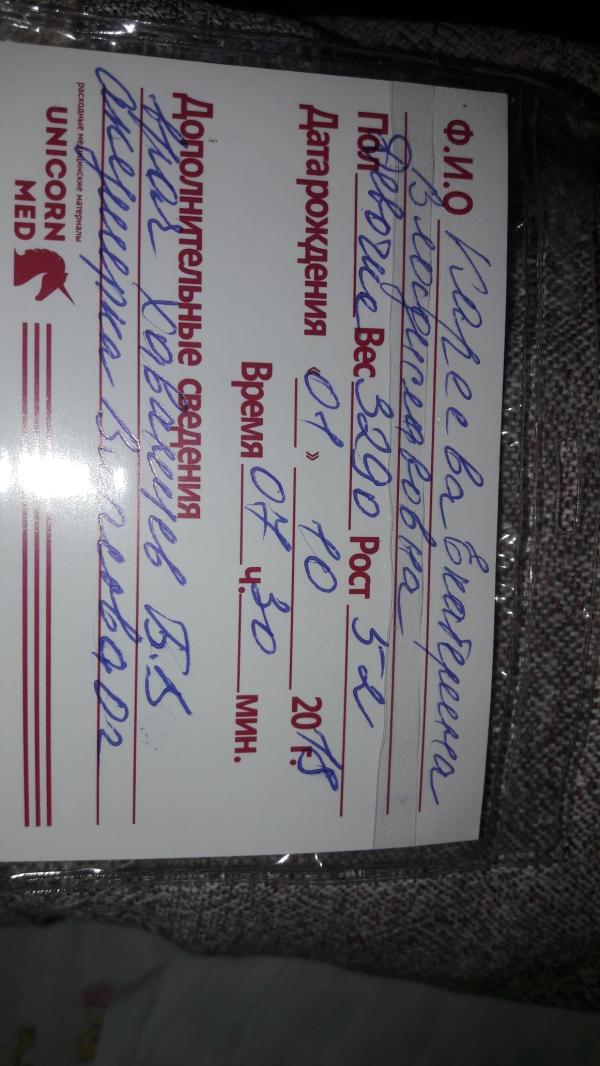 Ф.И.О Карева Екатерина
Владиславовна
Пол Девочка Вес 3290 Рост 52
Дата рождения « 01 » 10 2018 г.
Время 07 ч. 30 мин.
Дополнительные сведения
врач Б.Б
акушерка
расходные медицинские материалы
UNICORN
MED